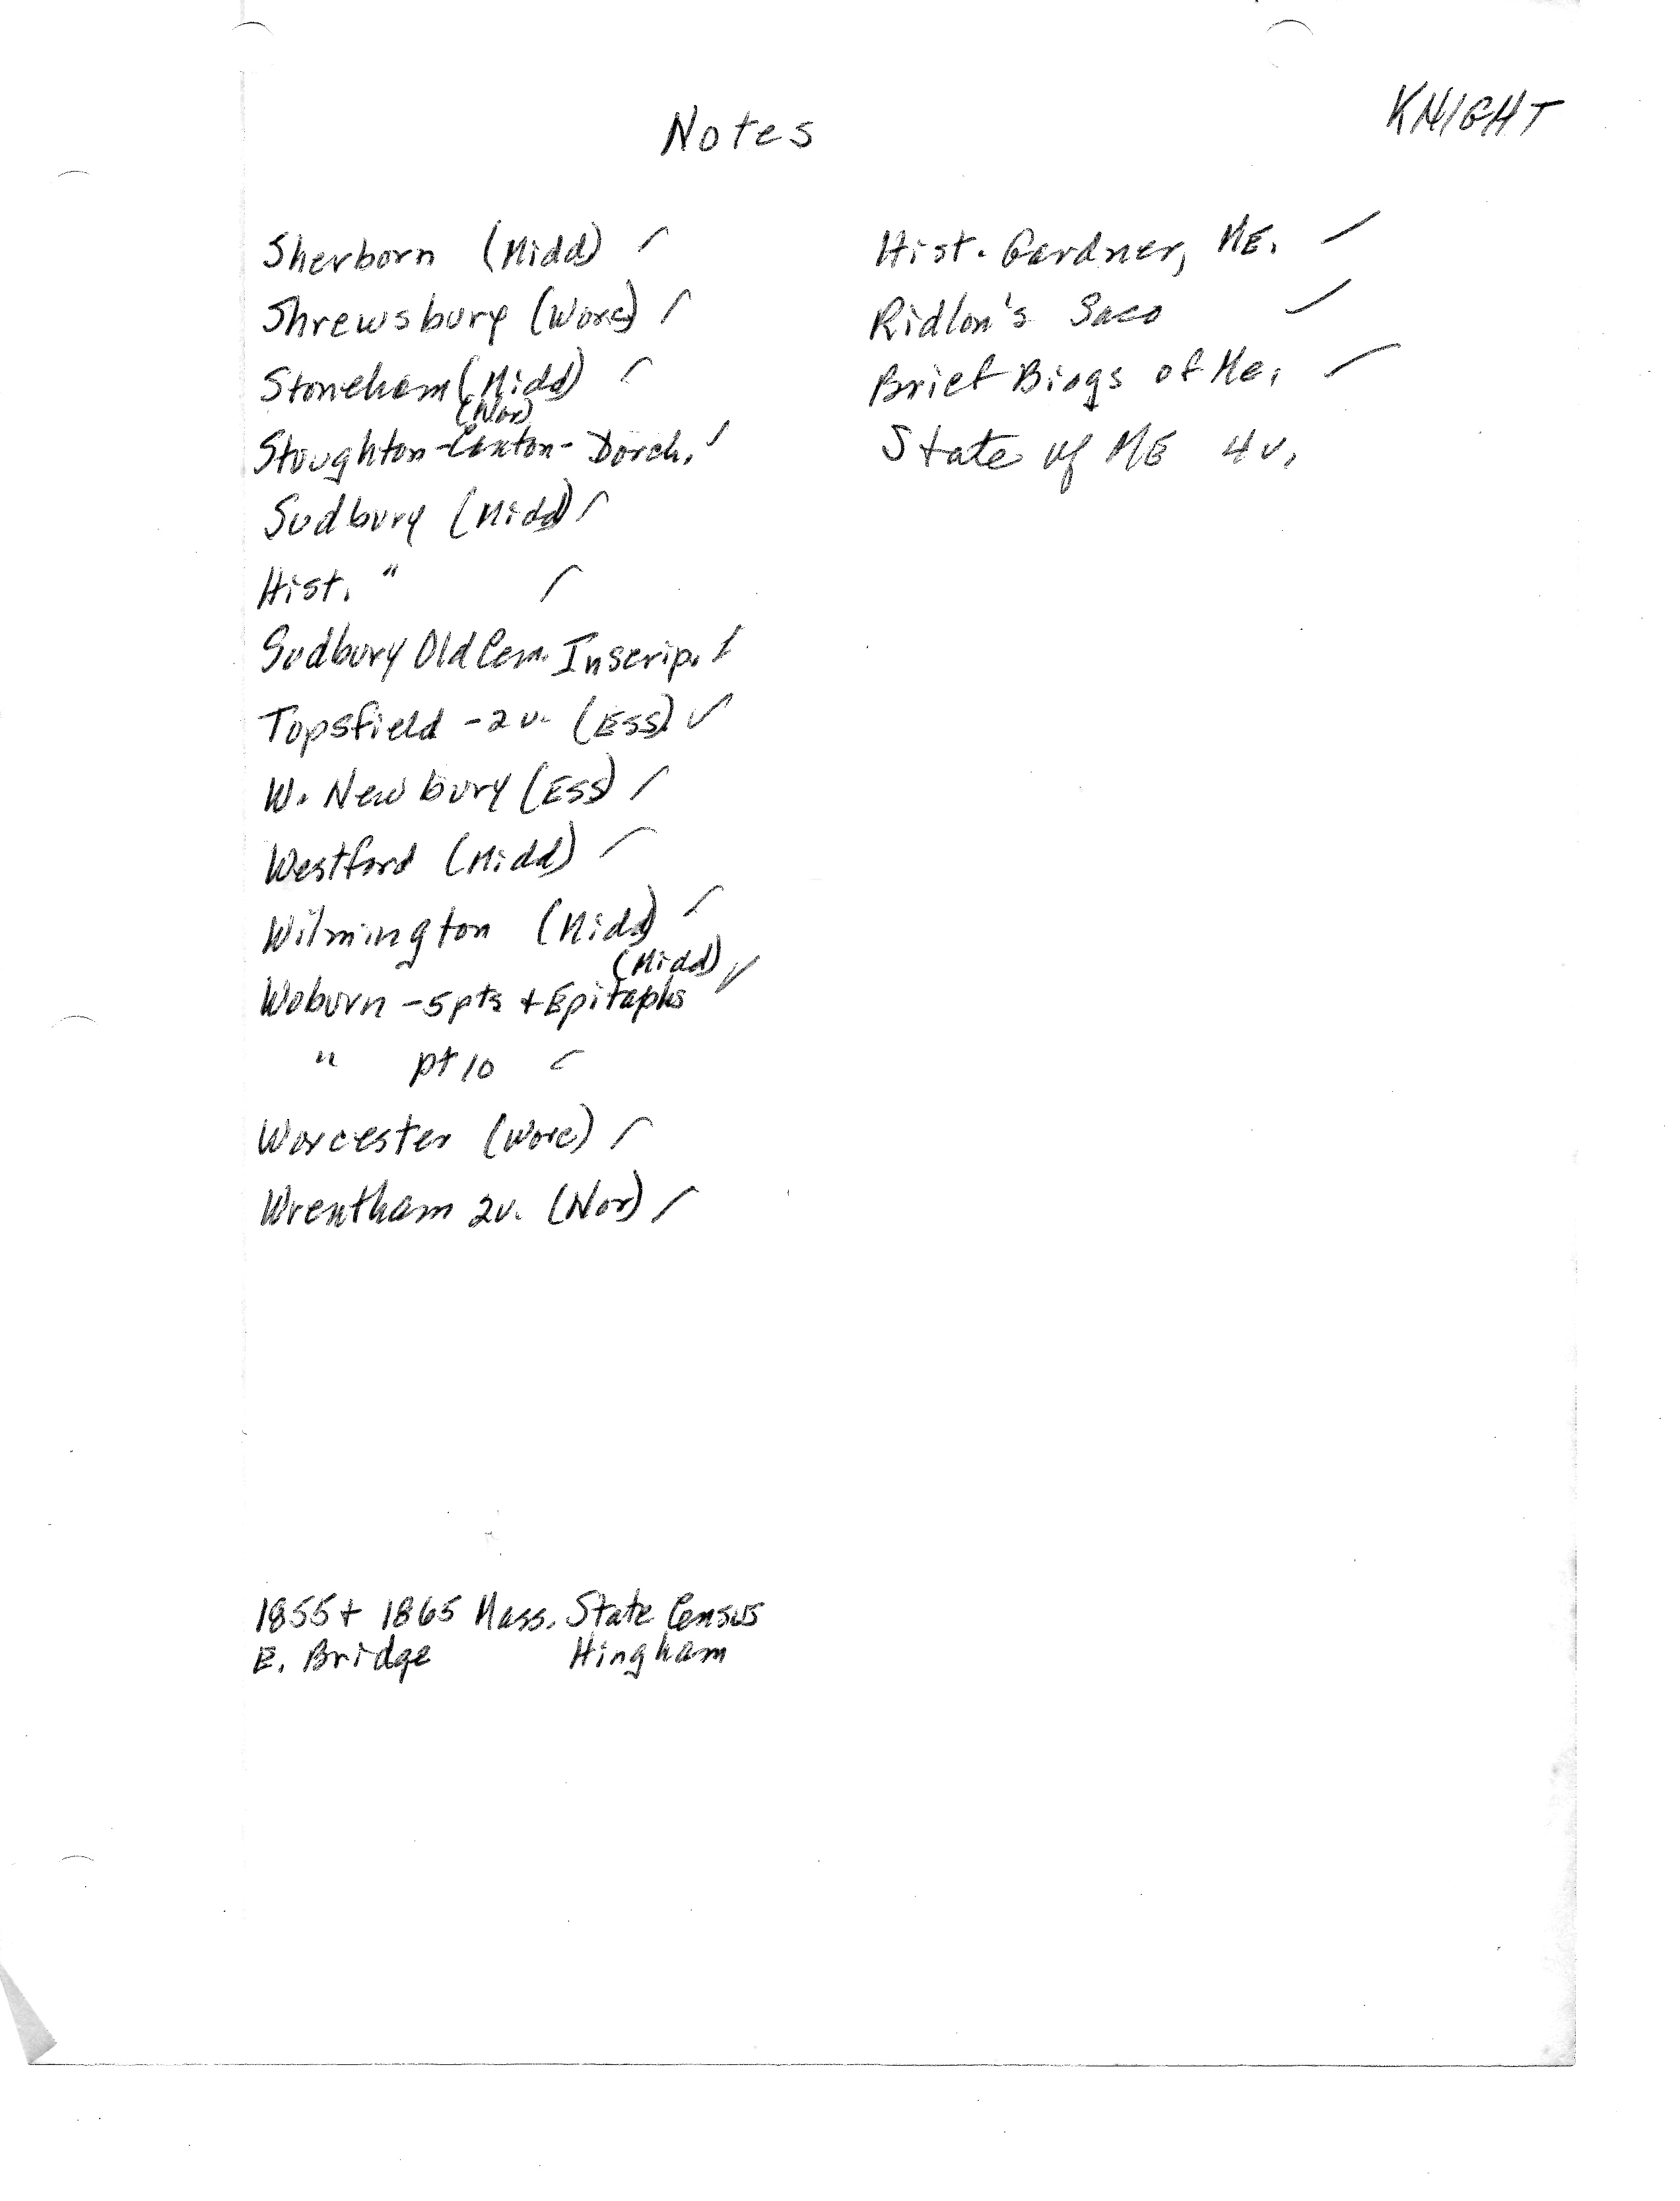 KNIGHT
Notes
Sherborn (Midd) ✓
Shrewsbury (Worc) ✓
Stoneham (Midd) ✓
(Nor)
Stoughton-Canton-Dorch. ✓
Sudbury (Midd) ✓
Hist. " ✓
Sudbury Old Cem. Inscrip. ✓
Topsfield - 2 v. (Ess) ✓
W. Newbury (Ess) ✓
Westford (Midd) ✓
Wilmington (Midd) ✓
(Midd) ✓
Woburn - 5 pts + Epitaphs
" pt 10 ✓
Worcester (Worc) ✓
Wrentham 2v. (Nor) ✓
Hist. Gardner, ME. ✓
Ridlon's Saco ✓
Brief Biogs of Me. ✓
State of ME 4 v.
1855 + 1865 Mass. State Census
E. Bridge Hingham